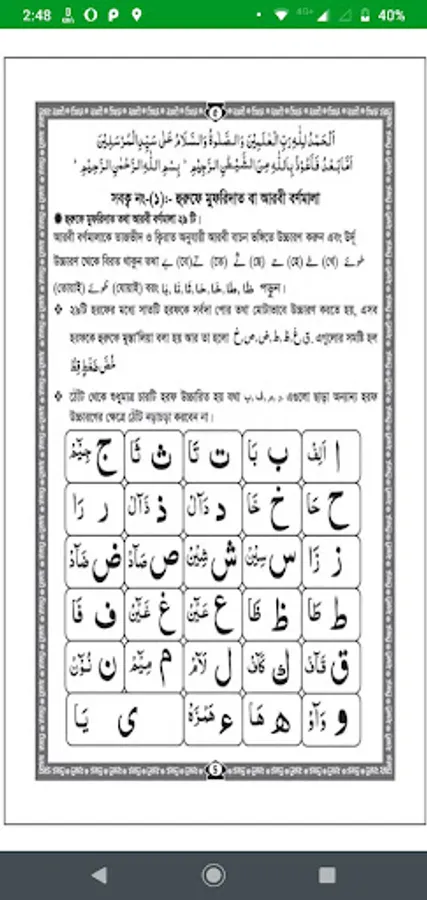 2:48
4G+
40%
اَلْحَمْدُ لِلّٰهِ رَبِّ الْعٰلَمِيْنَ وَالصَّلٰوةُ وَالسَّلَامُ عَلٰى سَيِّدِ الْمُرْسَلِيْنَ
اَمَّا بَعْدُ فَاَعُوْذُ بِاللّٰهِ مِنَ الشَّيْطٰنِ الرَّجِيْمِ ؕ بِسْمِ اللّٰهِ الرَّحْمٰنِ الرَّحِيْمِ ؕ
সবক্ব নং-(১)ঃ- হুরুফে মুফরিদাত বা আরবী বর্ণমালা
● হুরুফে মুফরিদাত তথা আরবী বর্ণমালা ২৯ টি।
আরবী বর্ণমালাকে তাজভীদ ও ক্বিরাত অনুযায়ী আরবী বাচন ভঙ্গিতে উচ্চারণ করুন এবং উর্দূ
উচ্চারণ থেকে বিরত থাকুন তথা بے (বে) تے (তে) ثے (ছে) حے (হে) خے (খে) طوئے
(তোয়াই) ظوئے (যোয়াই) বরং بَا, تَا, ثَا, حَا, خَا, طَا, ظَا পড়ুন।
❖ ২৯টি হরফের মধ্যে সাতটি হরফকে সর্বদা পোর তথা মোটাভাবে উচ্চারণ করতে হয়, এসব
হরফকে হুরুফে মুস্তা'লিয়া বলা হয় আর তা হলো خ, ص, ض, ط, ظ, غ, ق. এগুলোর সমষ্টি হল
خُصَّ ضَغْطٍ قِظْ
❖ ঠোঁট থেকে শুধুমাত্র চারটি হরফ উচ্চারিত হয় যথা ب, ف, م, و এগুলো ছাড়া অন্যান্য হরফ
উচ্চারণের ক্ষেত্রে ঠোঁট নড়াচড়া করবেন না।
ا اَلِفْ ب بَا ت تَا ث ثَا ج جِيْمْ
ح حَا خ خَا د دَالْ ذ ذَالْ ر رَا
ز زَا س سِيْنْ ش شِيْنْ ص صَادْ ض ضَادْ
ط طَا ظ ظَا ع عَيْنْ غ غَيْنْ ف فَا
ق قَافْ ك كَافْ ل لَامْ م مِيْمْ ن نُوْنْ
و وَاوْ ه هَا ء هَمْزَهْ ى يَا
5